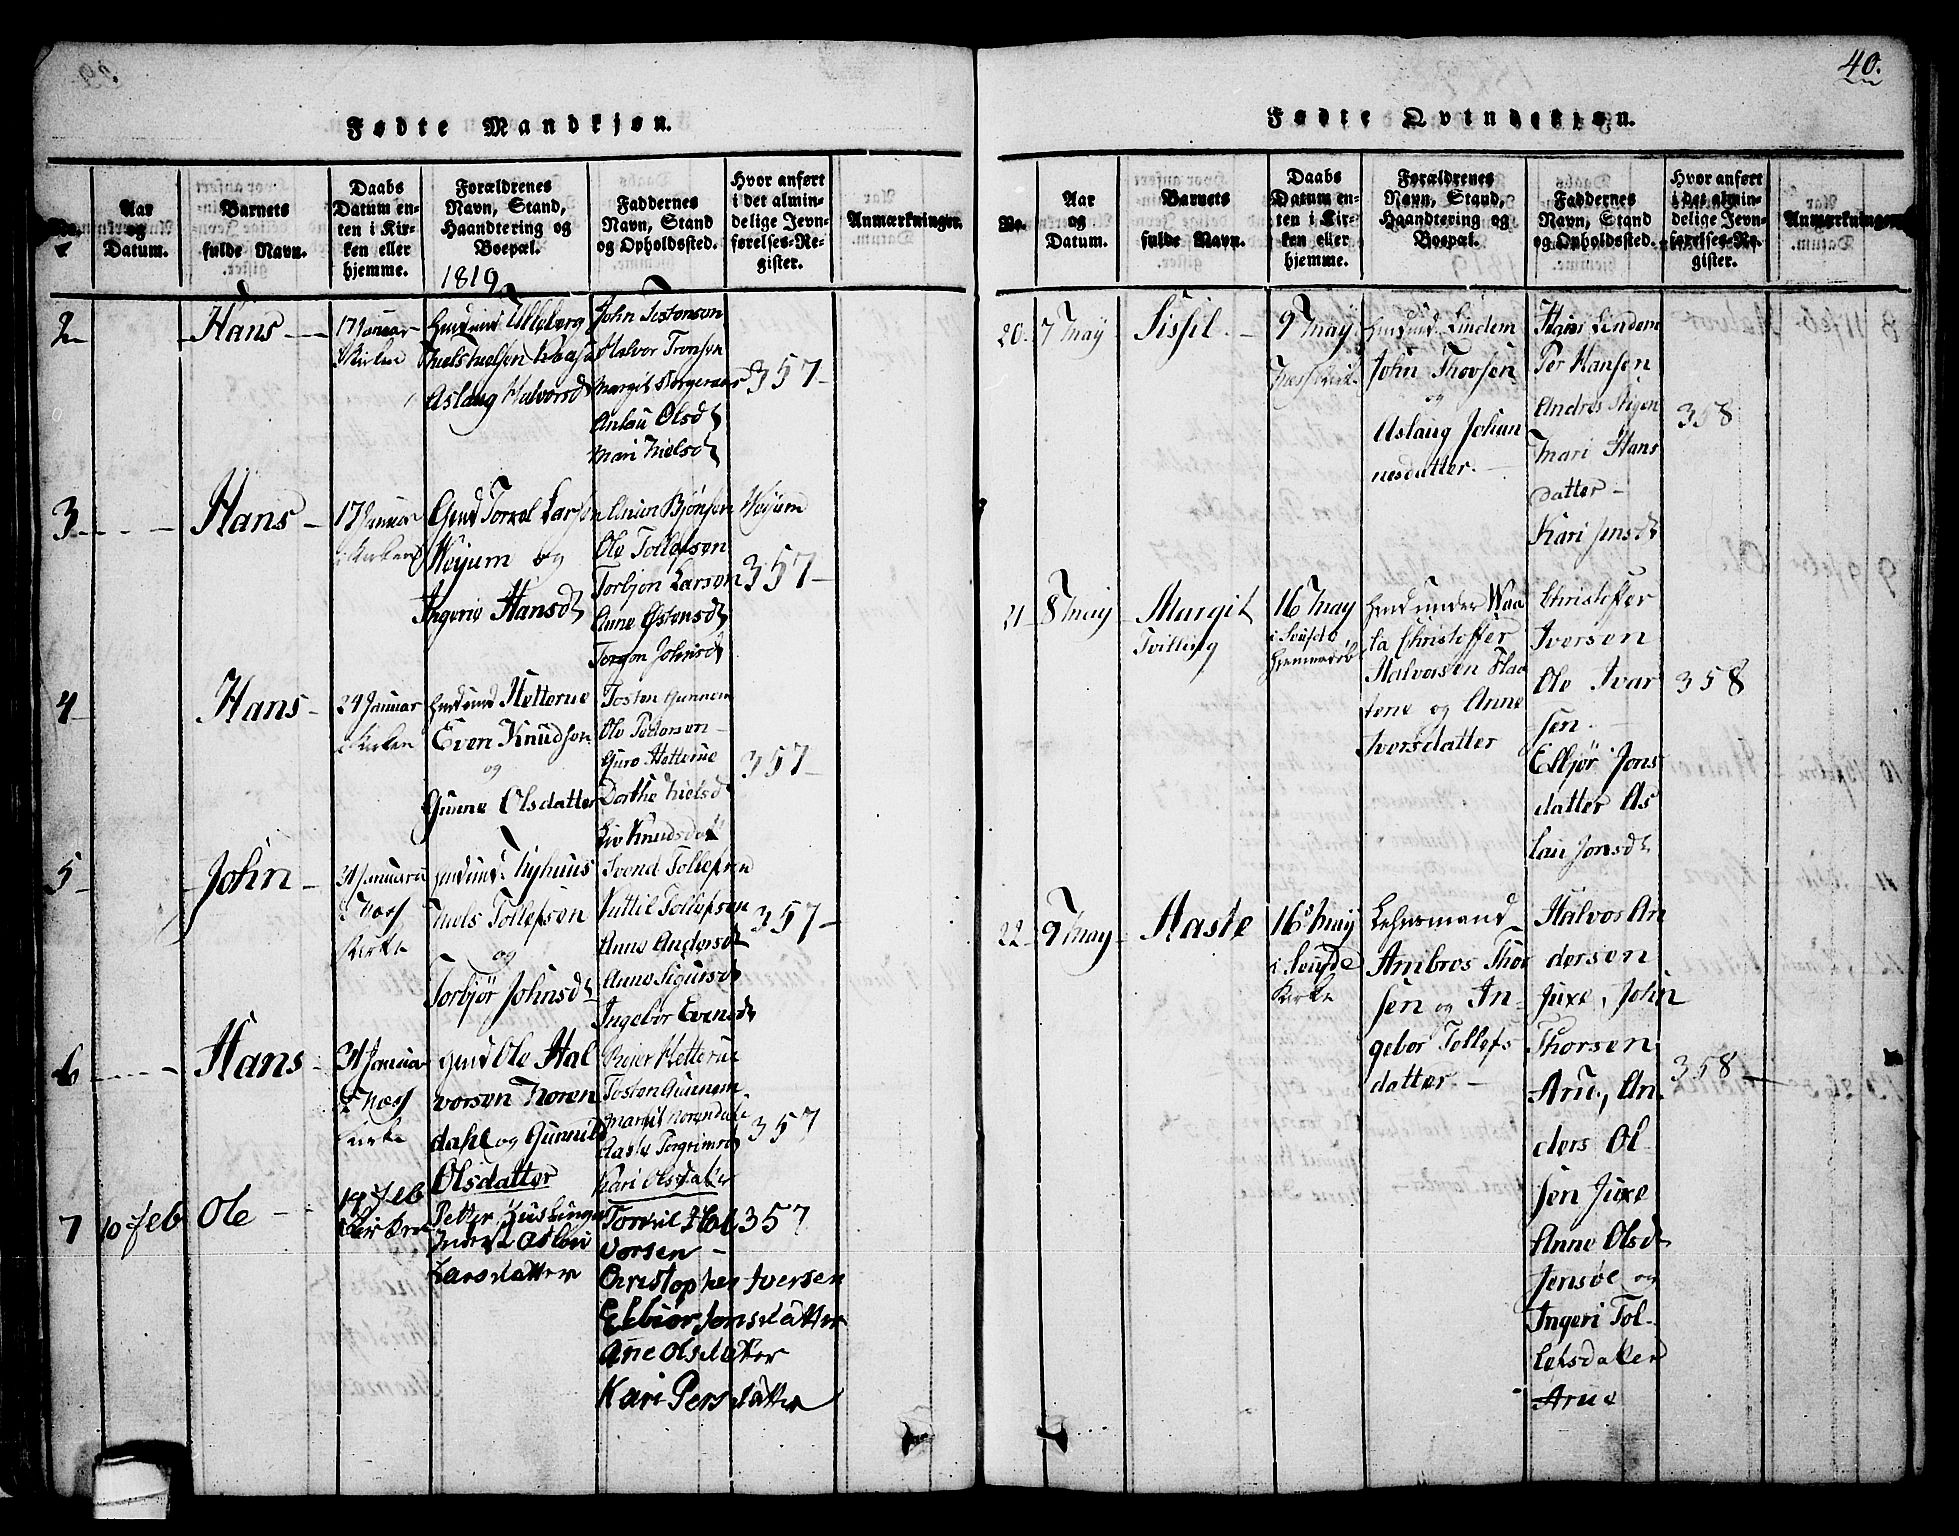 40.
Fødte Mandkjøn.
No.
Aar og Datum.
Barnets fulde Navn.
Daabs Datum enten i Kirken eller hjemme.
Forældrenes Navn, Stand, Haandtering og Boepæl.
Faddernes Navn, Stand og Opholdssted.
Hvor anført i det almindelige Jevnførelses-Register.
Anmærkninger.
1819
2
Hans
17 Januar
i Kirken
Ulleberg
Niels Nielsen
Aslaug Halvorsd
John Tostensen
Halvor Tronsen
Margit
Anlau Olsd
Mari Nielsd
357
3
Hans
17 Januar
i Kirken
Gmd Torkel Larsen
Høyum og
Ingerie Hansd
Bjønsen
Ole Tollefsen
Torbjøn Larsen
Anne Østensd
Torgon Johnsd
Høyum
357
4
Hans
24 Januar
i Kirken
Hetterue
Even Knudsen
og
Gunne Olsdatter
Tosten Gunnem
Ole Pedersen
Guro Hetterue
Dorthe Nielsd
Liv Knudsdat
357
5
John
31 Januar
i Næss
Kirke
Nyhuus
Niels Tollefsen
og
Torbjør Johnsd
Svend Tollefsen
Kittil Tollefsen
Anne Andersd
Anne Sigursd
Ingebor Evensd
357
6
Hans
31 Januar
i Næss
Kirke
Gmd Ole Hal
vorsen Noren
dahl og Gunnild
Olsdatter
Greier Hetterue
Tosten Gunnem
Margit Norendal
Aaste Torgrimsd
Kari Olsdatter
357
7
10 Feb
Ole
14 Feb
Petter
Inderst Aslau
Larsdatter
Torkil Hal
vorsen
Christopher Iversen
Elbiør Jonsdatter
Ane Olsdatter
Kari Persdatter
357
Fødte Qvindekjøn.
No.
Aar og Datum.
Barnets fulde Navn.
Daabs Datum enten i Kirken eller hjemme.
Forældrenes Navn, Stand, Haandtering og Boepæl.
Faddernes Navn, Stand og Opholdssted.
Hvor anført i det almindelige Jevnførelses-Register.
Anmærkninger.
20
7 May
Sissil
9 May
Næss Kirk
Lindem
John Thovsen
og
Aslaug Johan
nesdatter
Hans Lindem
Per Hansen
Andres Stigen
Mari Hans
datter
Kari Jensd
358
21
8 May
Margit
Tvilling
16 May
i Seufde
Hjemmedøb
under Waa
la Christoffer
Halvorsen Flaa
tene og Anne
Iversdatter
Christoffer
Iversen
Ole Ivar
sen
Elbjør Jons
datter As
lau Jonsd
358
22
9 May
Aaste
16 May
i Seufde
Kirke
Lehnsmand
Ambros Thor
sen og In-
gebor Tollefs
datter
Halvor An
dersen
Juxe, John
Thorsen
Arue, An
ders Ol
sen Juxe
Anne Olsd
Jensøe og
Ingeri Tol
lefsdatter
Arue
358